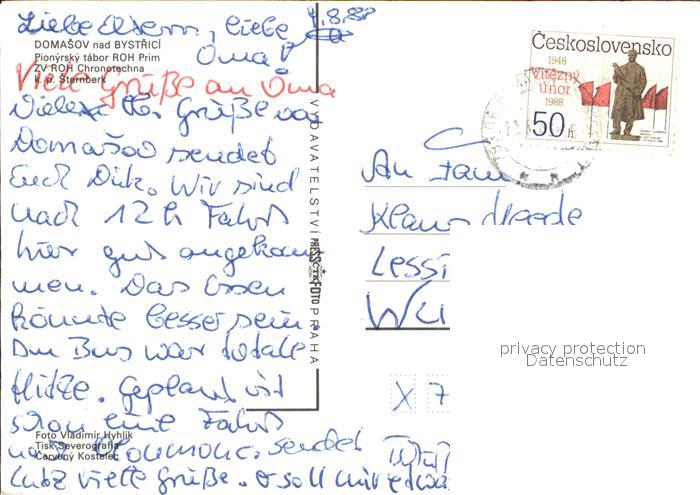 4.8.88
Liebe Eltern, liebe
Oma!
DOMAŠOV nad BYSTŘICÍ
Pionýrský tábor ROH Prim
ZV ROH Chronotechna
k. p. Šternberk
Viele Grüße an Oma
Viele Grüße von
Domašov sendet
Euch Dirk. Wir sind
nach 12 h Fahrt
hier gut angekom-
men. Das Essen
könnte besser sein.
Im Bus war totale
Hitze. Geplant ist
schon eine Fahrt
nach Olomouc. sendet
Lutz viele Grüße. er soll mir
Foto Vladimír Hyhlík
Tisk Severografia
Červený Kostelec
VYDAVATELSTVÍ PRESSFOTO PRAHA
Československo
1948
Vítězný
únor
1988
50
An Fam.
Klaus
Lessi
Wu
X 7
privacy protection
Datenschutz